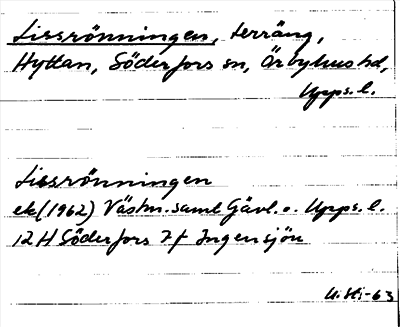 Lissrönningen, terräng,
Hyttan, Söderfors sn, Örbyhus hd,
Upps. l.
Lissrönningen
ek (1962) Västm. samt Gävl. o. Upps. l.
12 H Söderfors 7 f Ingensjön
-63